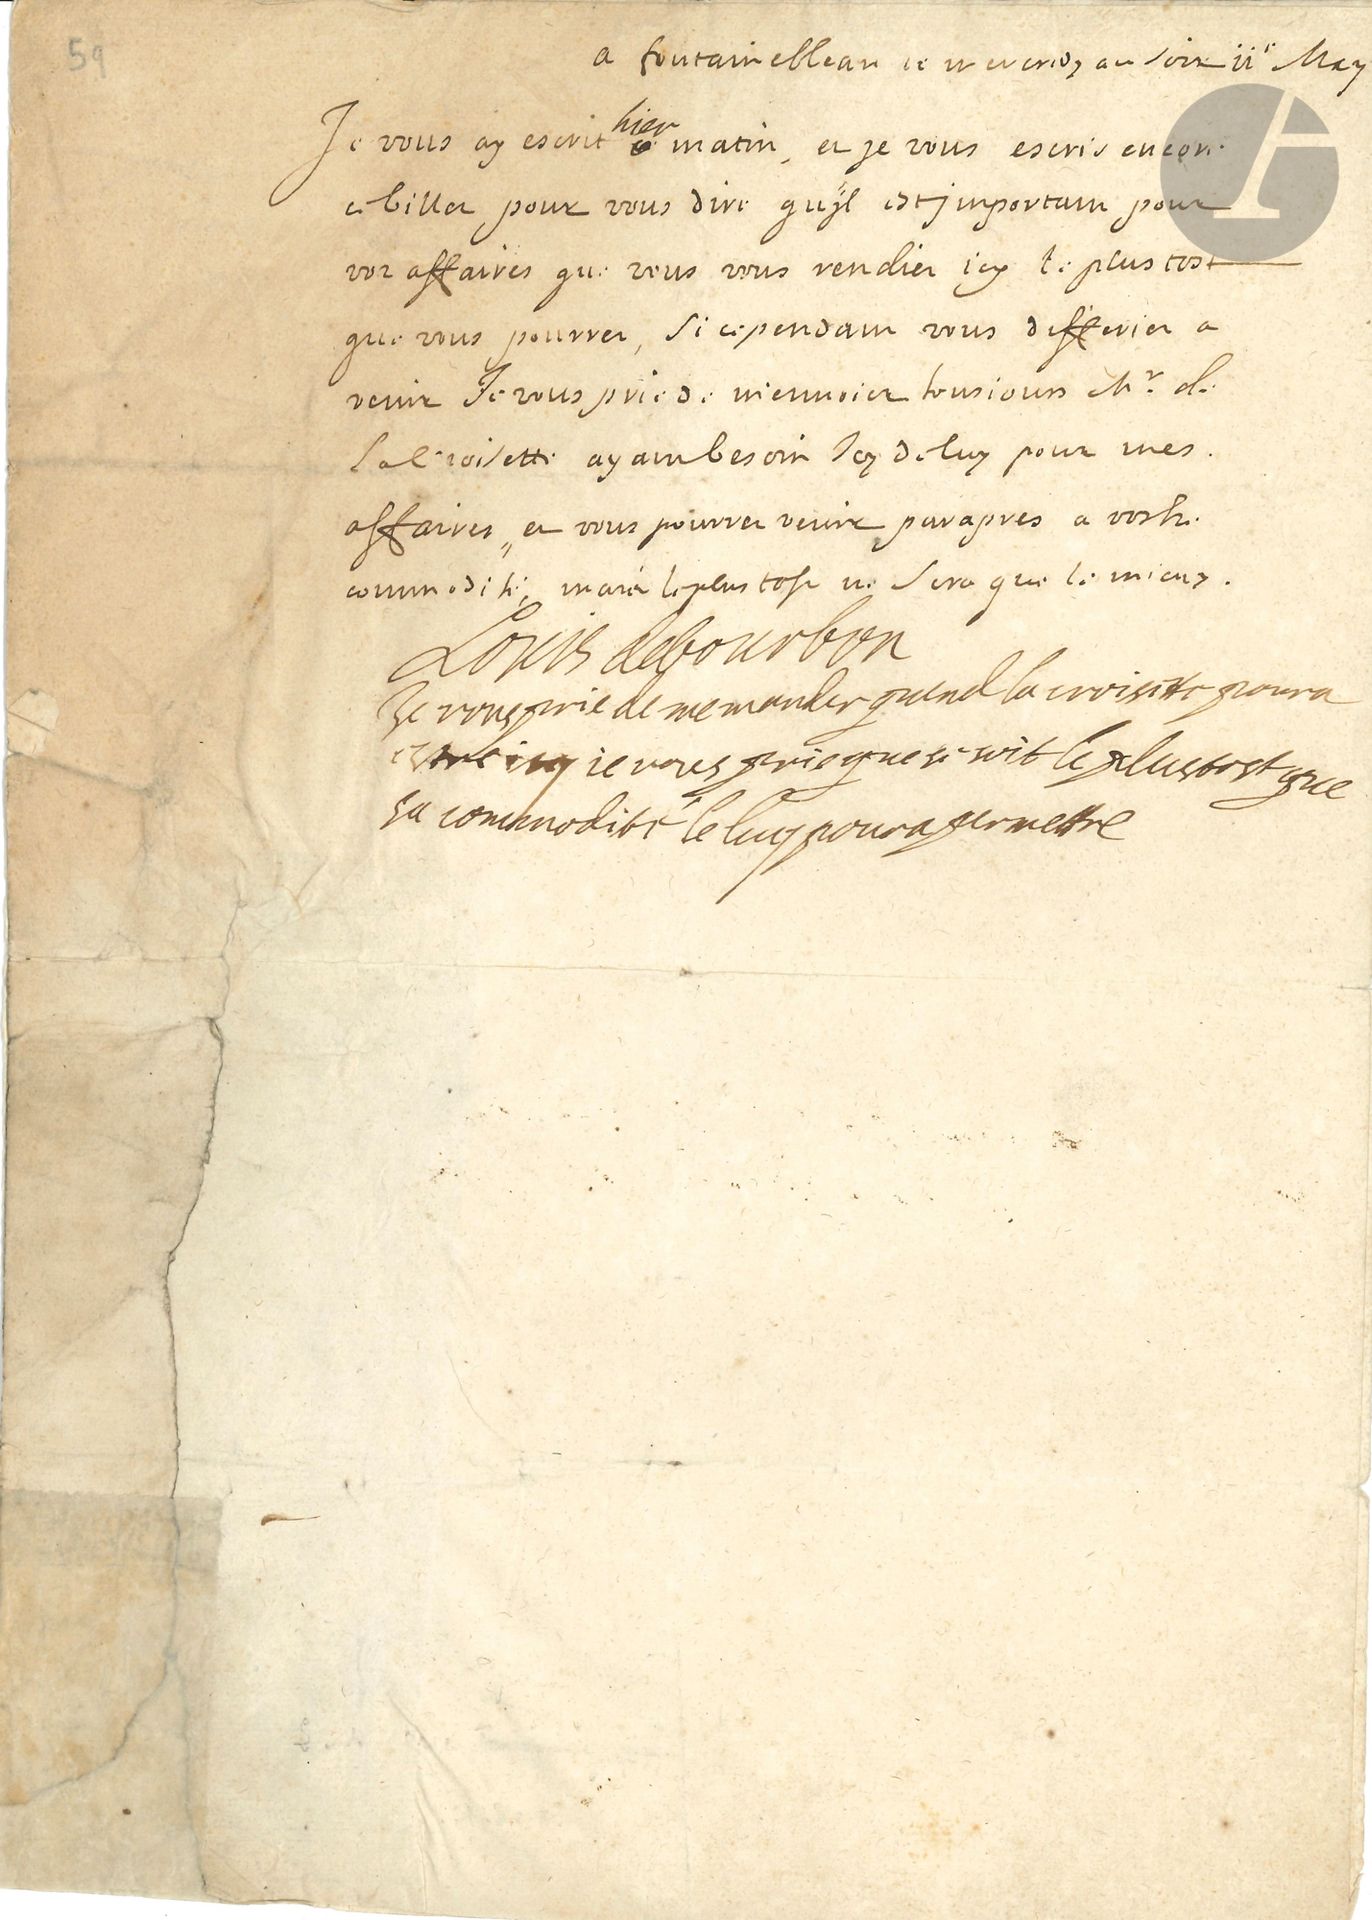 59
a fontainebleau ce mercredy au soir 11e May
Je vous ay escrit hier matin, et je vous escris encore
ce billet pour vous dire qu'jl est jmportant pour
voz affaires que vous vous rendiez icy le plus tost
que vous pourrez, Si cependant vous differiez a
venir Je vous prie de m'envoier tousiours Mr. de
la Croisette ayant besoin Icy de luy pour mes
affaires, et vous pourrez venir par apres a vostre
commodité, mais le plus tost ne sera que le mieux.
Louis de bourbon
Je vous prie de me mander quand la croisette poura
estre icy ie vous prie que se soit le plus tost que
sa commodité le luy poura permettre